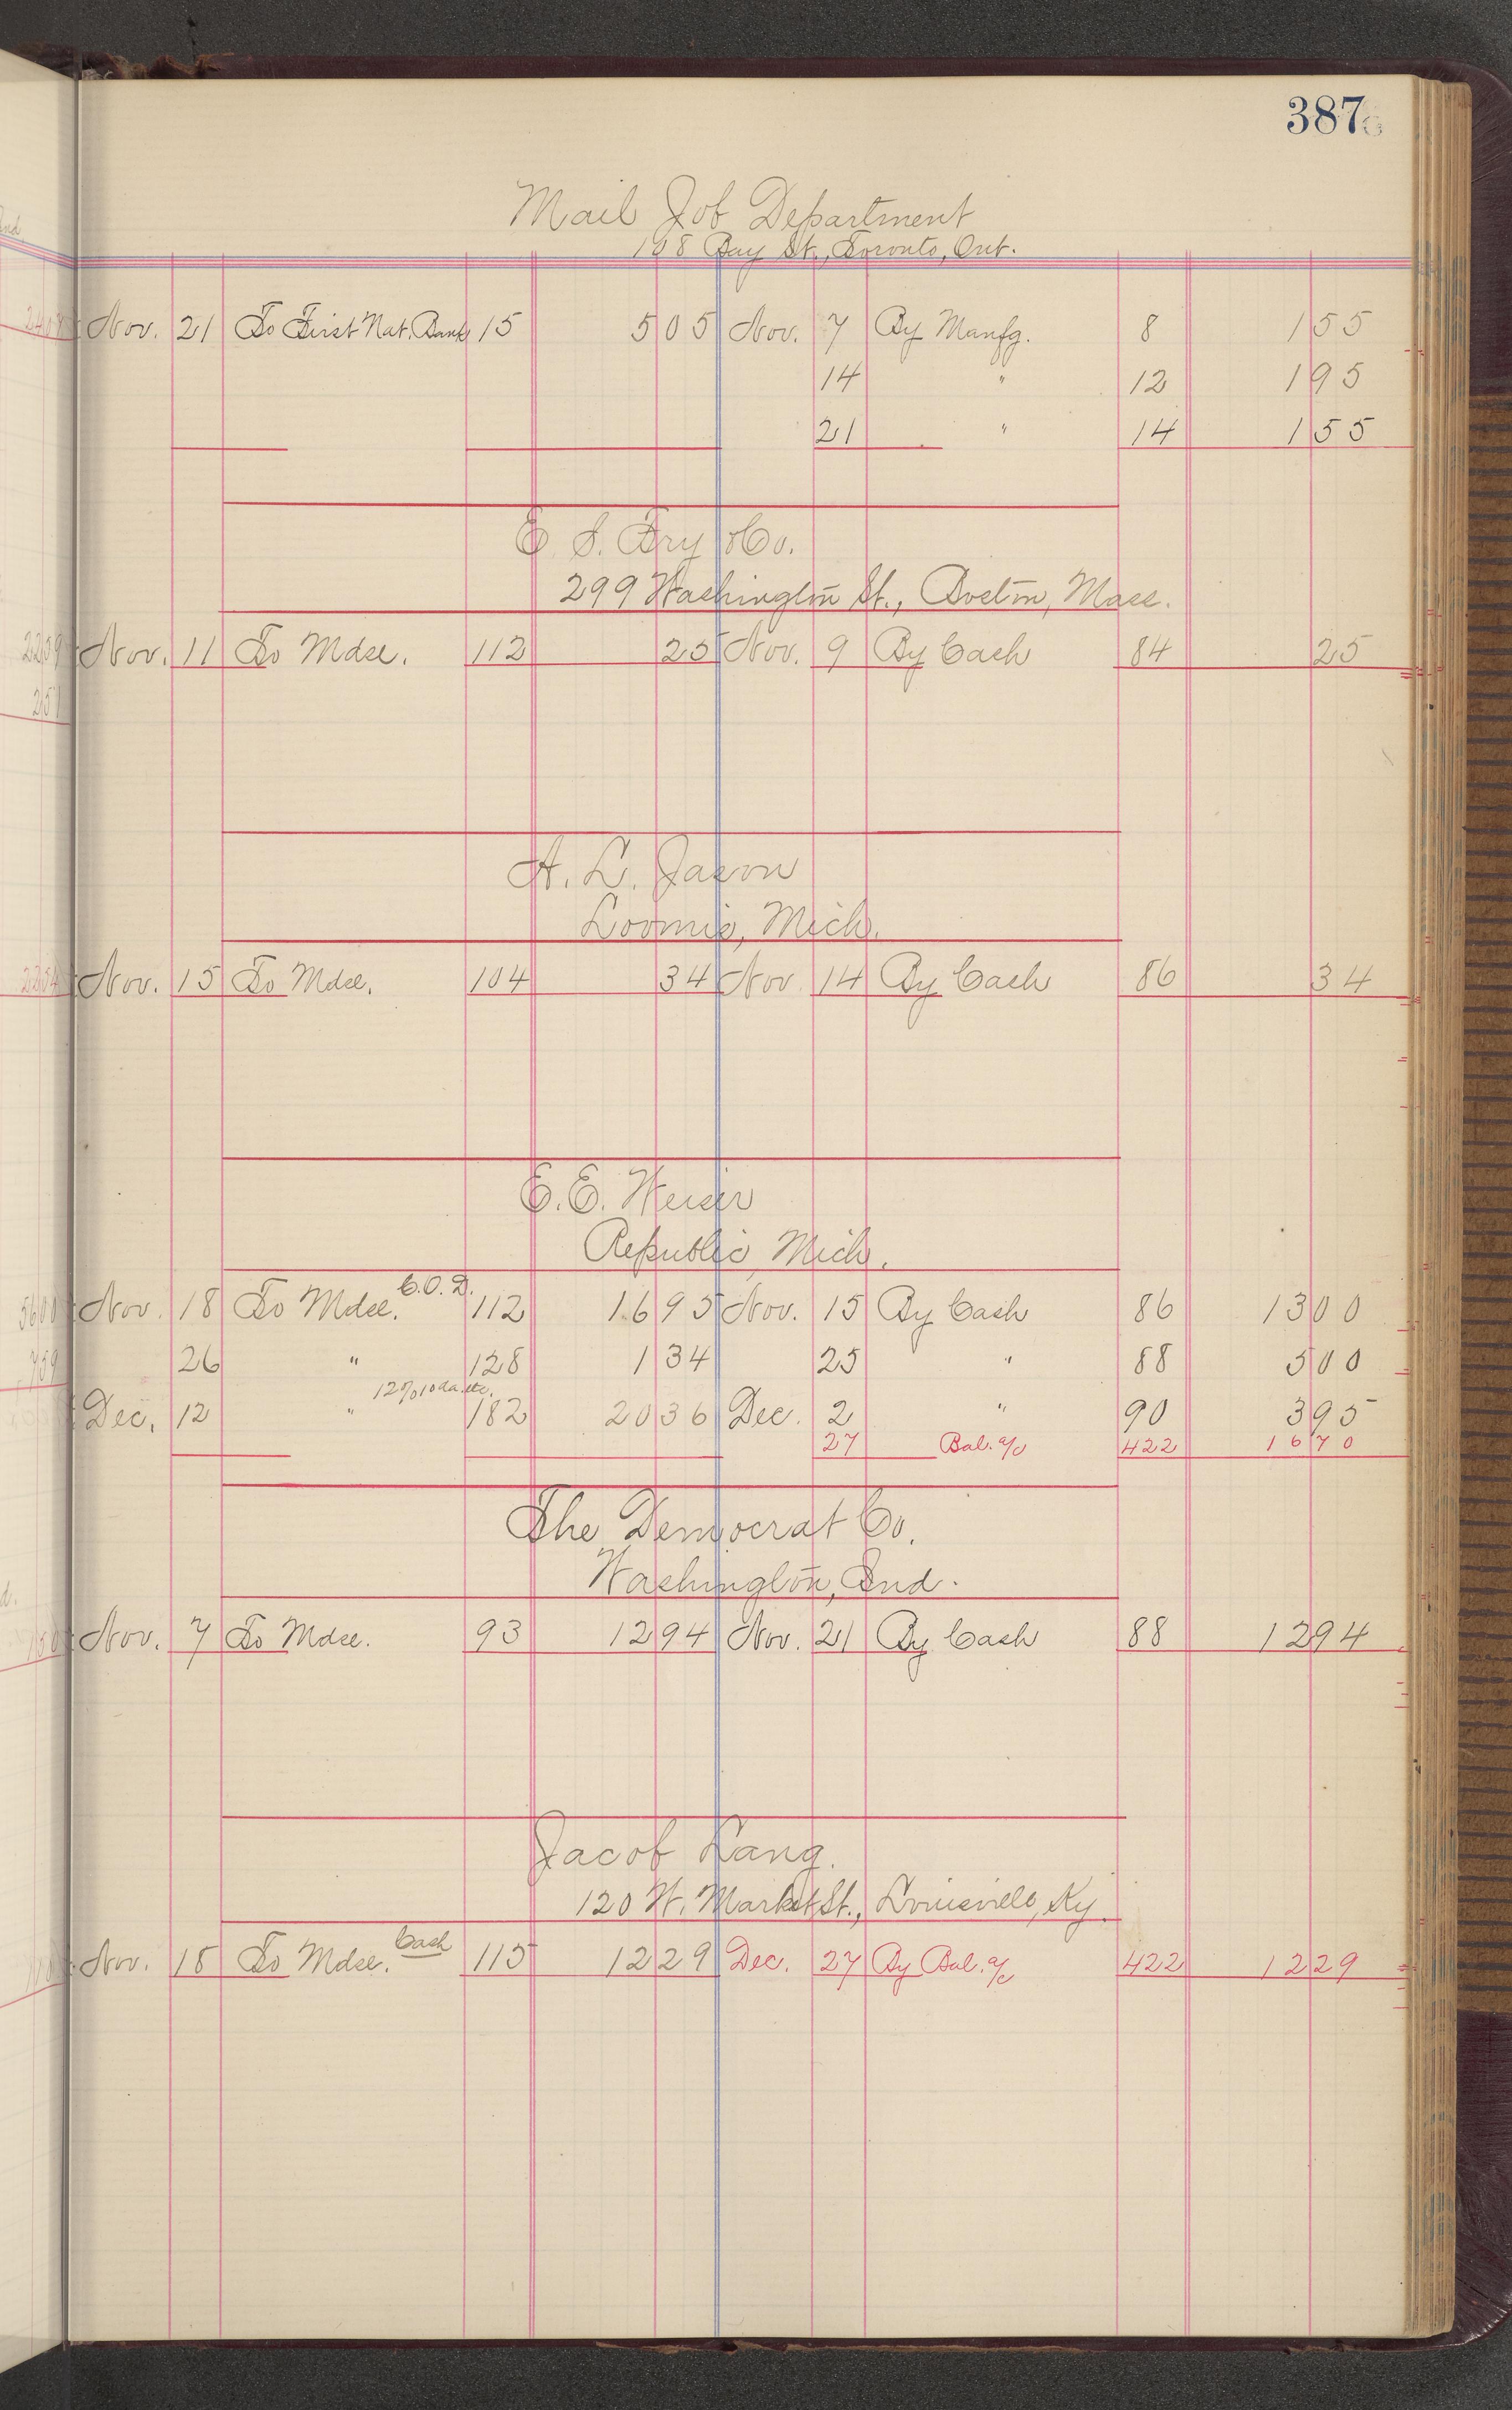 387
Mail Job Department
108 Bay St., Toronto, Ont.
Nov. 21 To First Nat. Bank 15 5 05 Nov. 7 By Manfg. 8 1 55
14 " 12 1 95
21 " 14 1 55
E. S. Fry & Co.
299 Washington St., Boston, Mass.
Nov. 11 To Mdse. 112 25 Nov. 9 By Cash 84 25
A. L. Jason
Loomis, Mich.
Nov. 15 To Mdse. 104 34 Nov 14 By Cash 86 34
E. E. Weiser
Republic, Mich.
Nov. 18 To Mdse. C.O.D. 112 16 95 Nov. 15 By Cash 86 13 00
26 " 128 1 34 25 " 88 5 00
Dec. 12 " 12% 10 da. etc. 182 20 36 Dec. 2 " 90 3 95
27 Bal. a/c 422 16 70
The Democrat Co.
Washington, Ind.
Nov. 7 To Mdse. 93 12 94 Nov. 21 By Cash 88 12 94
Jacob Lang.
120 W. Market St., Louisville, Ky.
Nov. 18 To Mdse. Cash 115 12 29 Dec. 27 By Bal. a/c 422 12 29